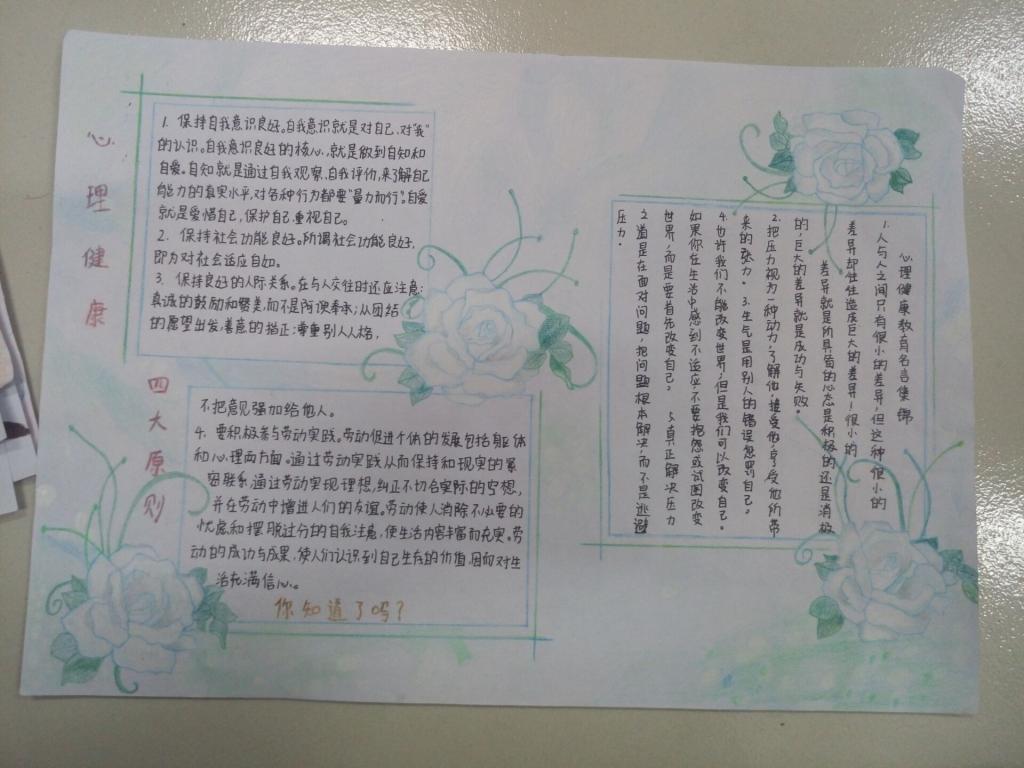 心理健康
四大原则
1. 保持自我意识良好。自我意识就是对自己,对“我”
的认识。自我意识良好的核心,就是做到自知和
自爱。自知就是通过自我观察,自我评价,来了解自己
能力的真实水平,对各种行为都要“量力而行”。自爱
就是爱惜自己,保护自己,重视自己。
2. 保持社会功能良好。所谓社会功能良好,
即为对社会适应自如。
3. 保持良好的人际关系。在与人交往时还应注意:
真诚的鼓励和赞美,而不是阿谀奉承;从团结
的愿望出发,善意的指正;尊重别人人格,
不把意见强加给他人。
4. 要积极参与劳动实践。劳动促进个体的发展包括躯体
和心理两方面。通过劳动实践从而保持和现实的紧
密联系,通过劳动实现理想,纠正不切合实际的空想,
并在劳动中增进人们的友谊。劳动使人消除不必要的
忧虑和摆脱过分的自我注意,使生活内容丰富而充实。劳
动的成功与成果,使人们认识到自己生存的价值,因而对生
活充满信心。
你知道了吗?
心理健康教育名言集锦
1.人与人之间只有很小的差异,但这种很小的
差异却往往造成巨大的差异!很小的
差异就是所具备的心态是积极的还是消极
的,巨大的差异就是成功与失败。
2.把压力视为一种动力,了解他,接受他,享受他所带
来的张力。3.生气是用别人的错误惩罚自己。
4.也许我们不能改变世界,但是我们可以改变自己。
如果你在生活中感到不适应,不要抱怨或试图改变
世界,而是要首先改变自己。 5.真正解决压力
之道是在面对问题,把问题根本解决,而不是逃避
压力。